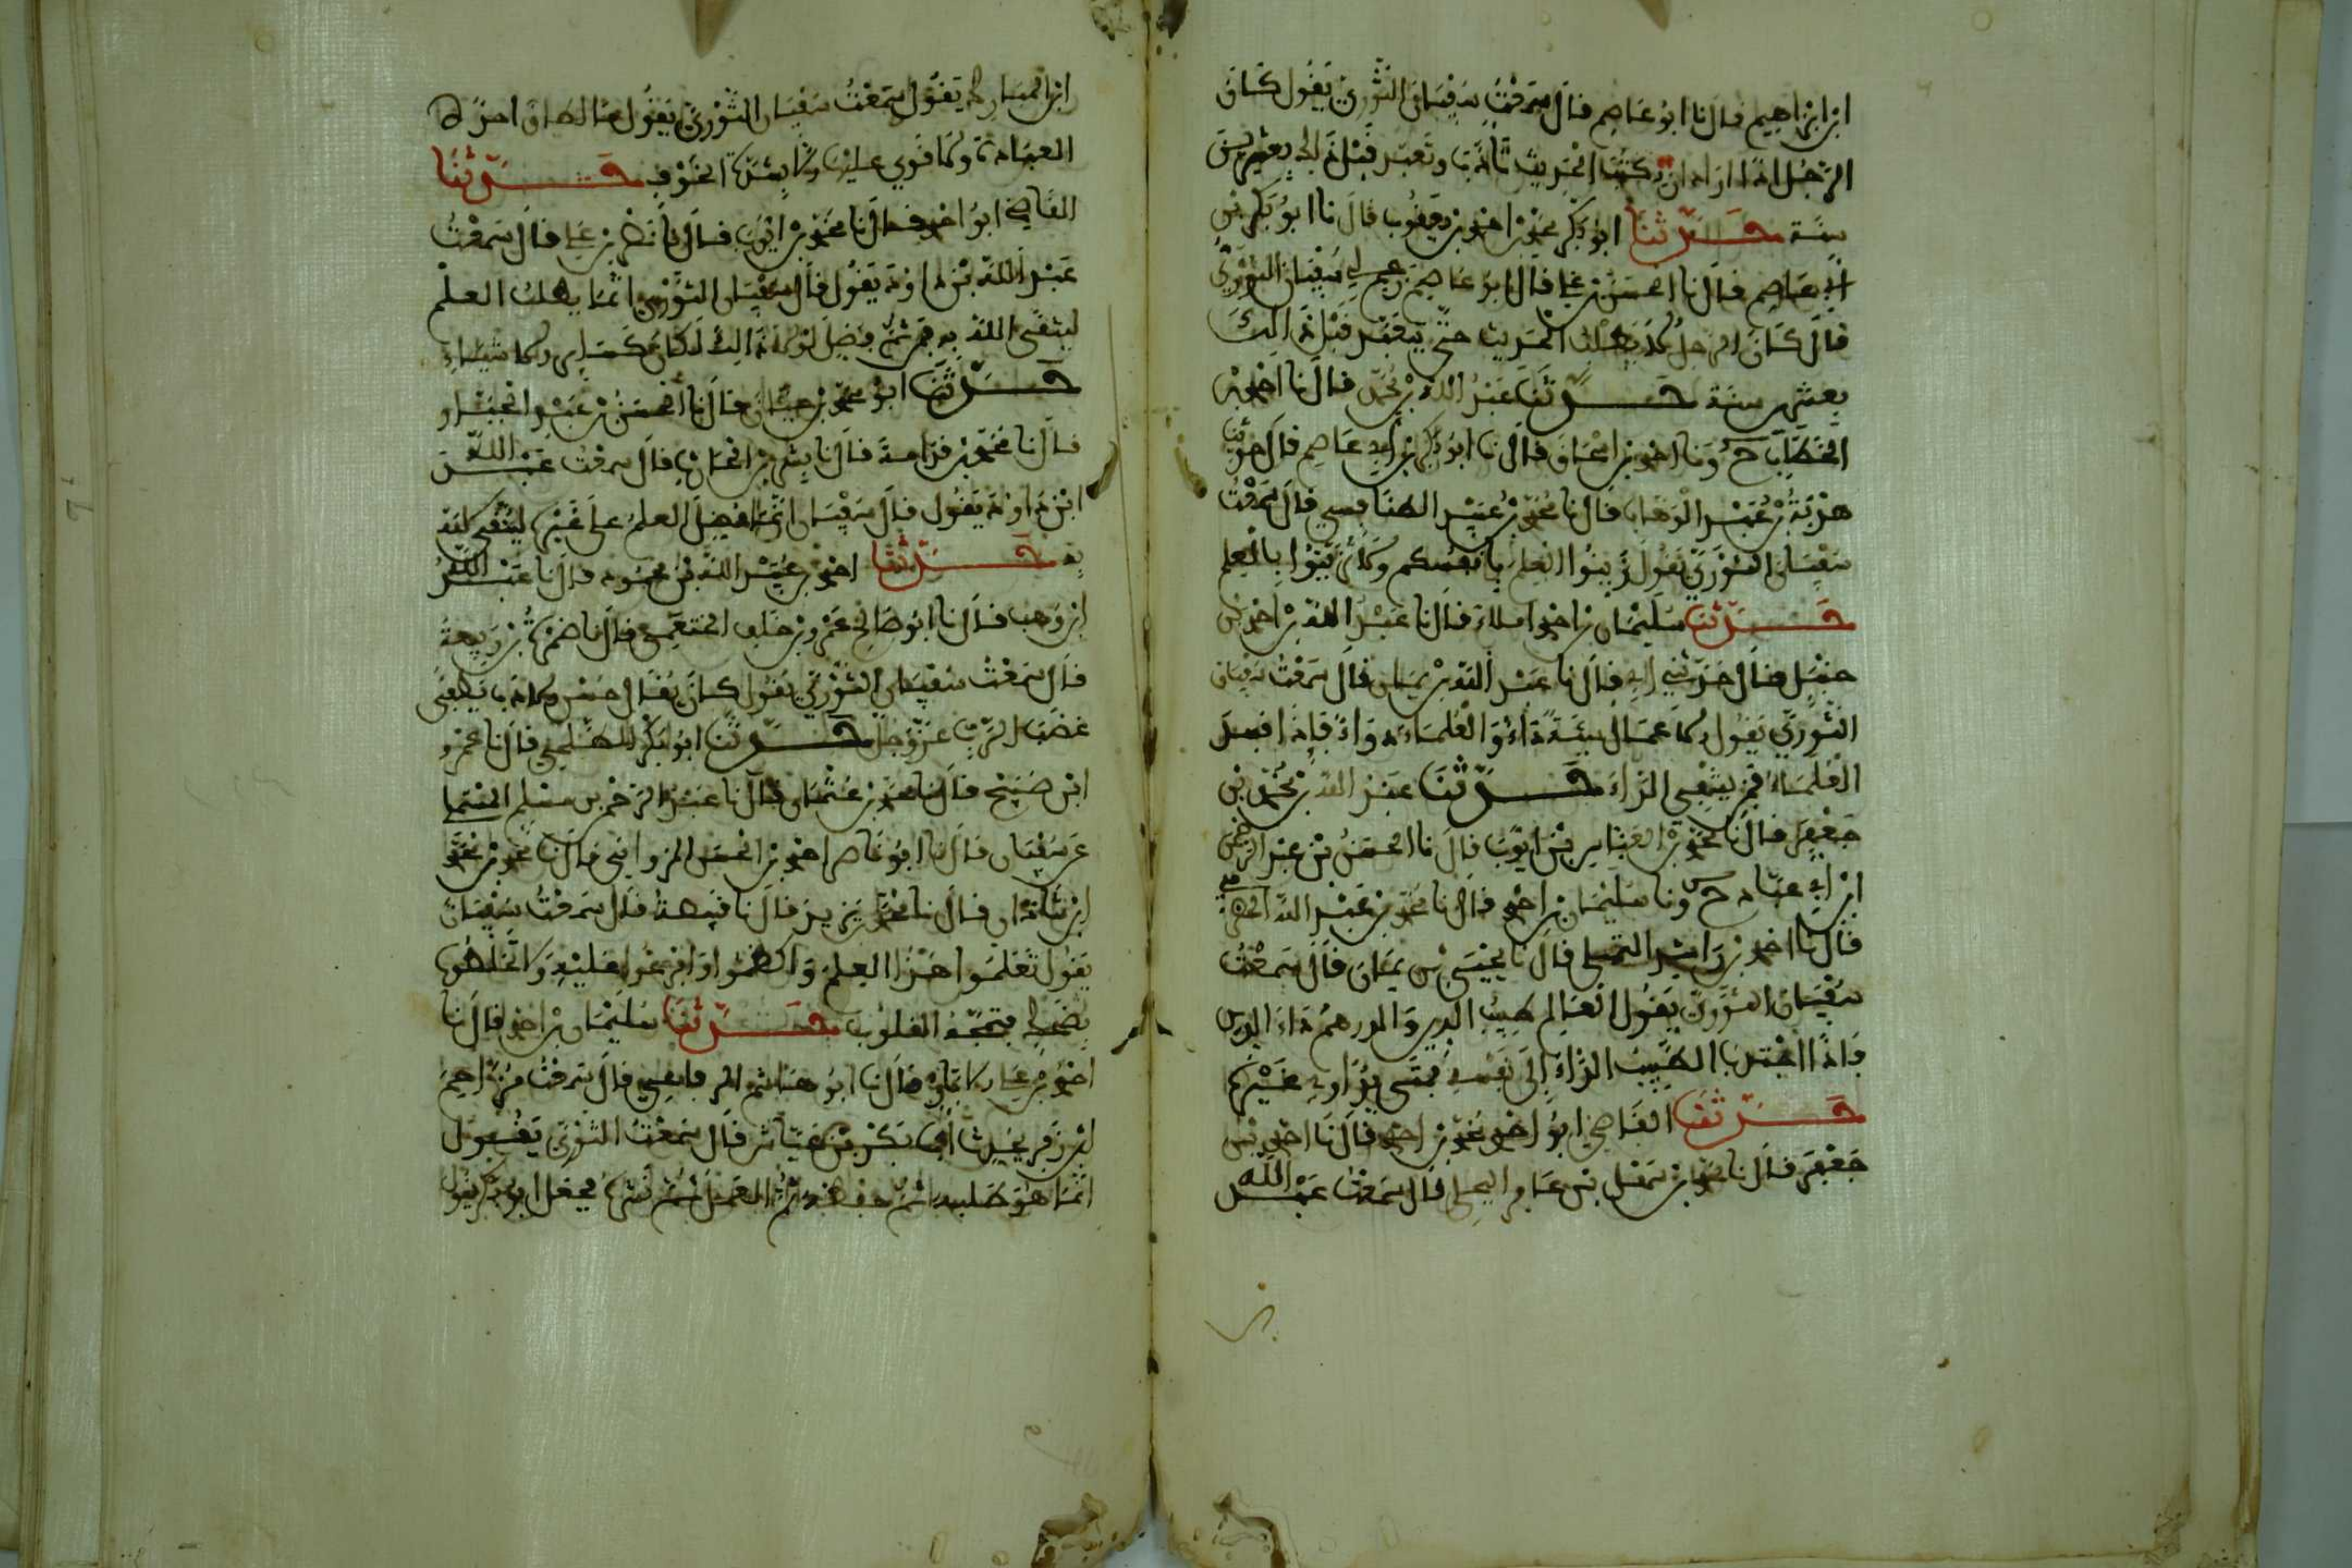 ابن ابراهيم قال نا ابو عاصم قال سمعت سفيان الثوري يقول كان
الرجل اذا اراد ان يكتب الحديث تادب وتعبد قبل ذلك بعشرين
سنة حدثنا ابو بكر محمد بن احمد بن يعقوب قال نا ابو بكر بن
ابي عاصم قال نا الحسن بن علي قال نا ابو عاصم سفيان الثوري
قال كان الرجل لا يطلب الحديث حتى يتعبد قبل ذلك
بعشرين سنة حدثنا عبد الله بن محمد قال نا احمد بن
الخطاب ح ونا احمد بن اسحاق قال نا ابو بكر بن ابي عاصم قال حدثنا
هدبة بن عبد الوهاب قال نا محمد بن عبيد الطنافسي قال سمعت
سفيان الثوري يقول زينوا العلم بانفسكم ولا تزينوا بالعلم
حدثنا سليمان بن احمد املاء قال نا عبد الله بن احمد بن
حنبل قال حدثني ابي قال نا عبد الله بن يمان قال سمعت سفيان
الثوري يقول الاعمال السيئة داء والعلماء دواء فاذا فسد
العلماء فمن يشفي الداء حدثنا عبد الله بن محمد بن
جعفر قال نا محمد بن العباس بن ايوب قال نا الحسن بن عبد الرحمن
ابن ابي عباد ح ونا سليمان بن احمد قال نا محمد بن عبد الله الحضرمي
قال نا احمد بن راشد البجلي قال نا يحيى بن يمان قال سمعت
سفيان الثوري يقول العالم طبيب الدين والدرهم داء الدين
فاذا اجتذب الطبيب الداء الى نفسه فمتى يداوي غيره
حدثنا القاضي ابو احمد محمد بن احمد قال نا احمد بن
جعفر قال نا محمد بن سهل بن عامر البجلي قال سمعت عبد الله
ابن المبارك يقول سمعت سفيان الثوري يقول منا لطاق احدكم
العبادة ولا قوي عليها الا بشدة الخوف حدثنا
القاضي ابو احمد قال نا محمد بن ايوب قال نا نصر بن علي قال سمعت
عبد الله بن داود يقول قال سفيان الثوري انما يطلب العلم
ليتقى الله به فمن ثم فضل لولا ذلك لكان كسائر الاشياء
حدثنا ابو محمد بن حيان قال نا الحسن بن عبد الجبار و
قال نا محمد بن قدامة قال نا بشر بن الحارث قال سمعت عبد الله
ابن داود يقول قال سفيان انما فضل العلم على غيره ليتقى الله
به حدثنا احمد بن عبيد الله بن محمود قال نا عبد الله
ابن وهب قال نا ابو صالح عمرو بن خلف الخثعمي قال نا ضمرة بن ربيعة
قال سمعت سفيان الثوري يقول كان يقال حسن الادب يطفئ
غضب الرب عز وجل حدثنا ابو بكر الطلحي قال نا عمرو
ابن صبيح قال نا محمد بن عثمان قال نا عبد الرحمن بن مسلم
عن سفيان قال نا ابو عاصم احمد بن الحسن المروانى قال نا محمد بن محمد
ابن شاذان قال نا محمد بن يزيد قال نا قبيصة قال سمعت سفيان
يقول تعلموا هذا العلم واكظموا عليه ولا تخلطوه
بضحك فتمجه القلوب حدثنا سليمان بن احمد قال نا
احمد بن علي الابار قال نا ابو هشام الرفاعي قال سمعت مزاحم
ابن زفر يحدث ابا بكر بن عياش قال سمعت الثوري يقول
انما هو طلبه ثم حفظه ثم العمل ثم نشره فجعل ابو بكر يقول